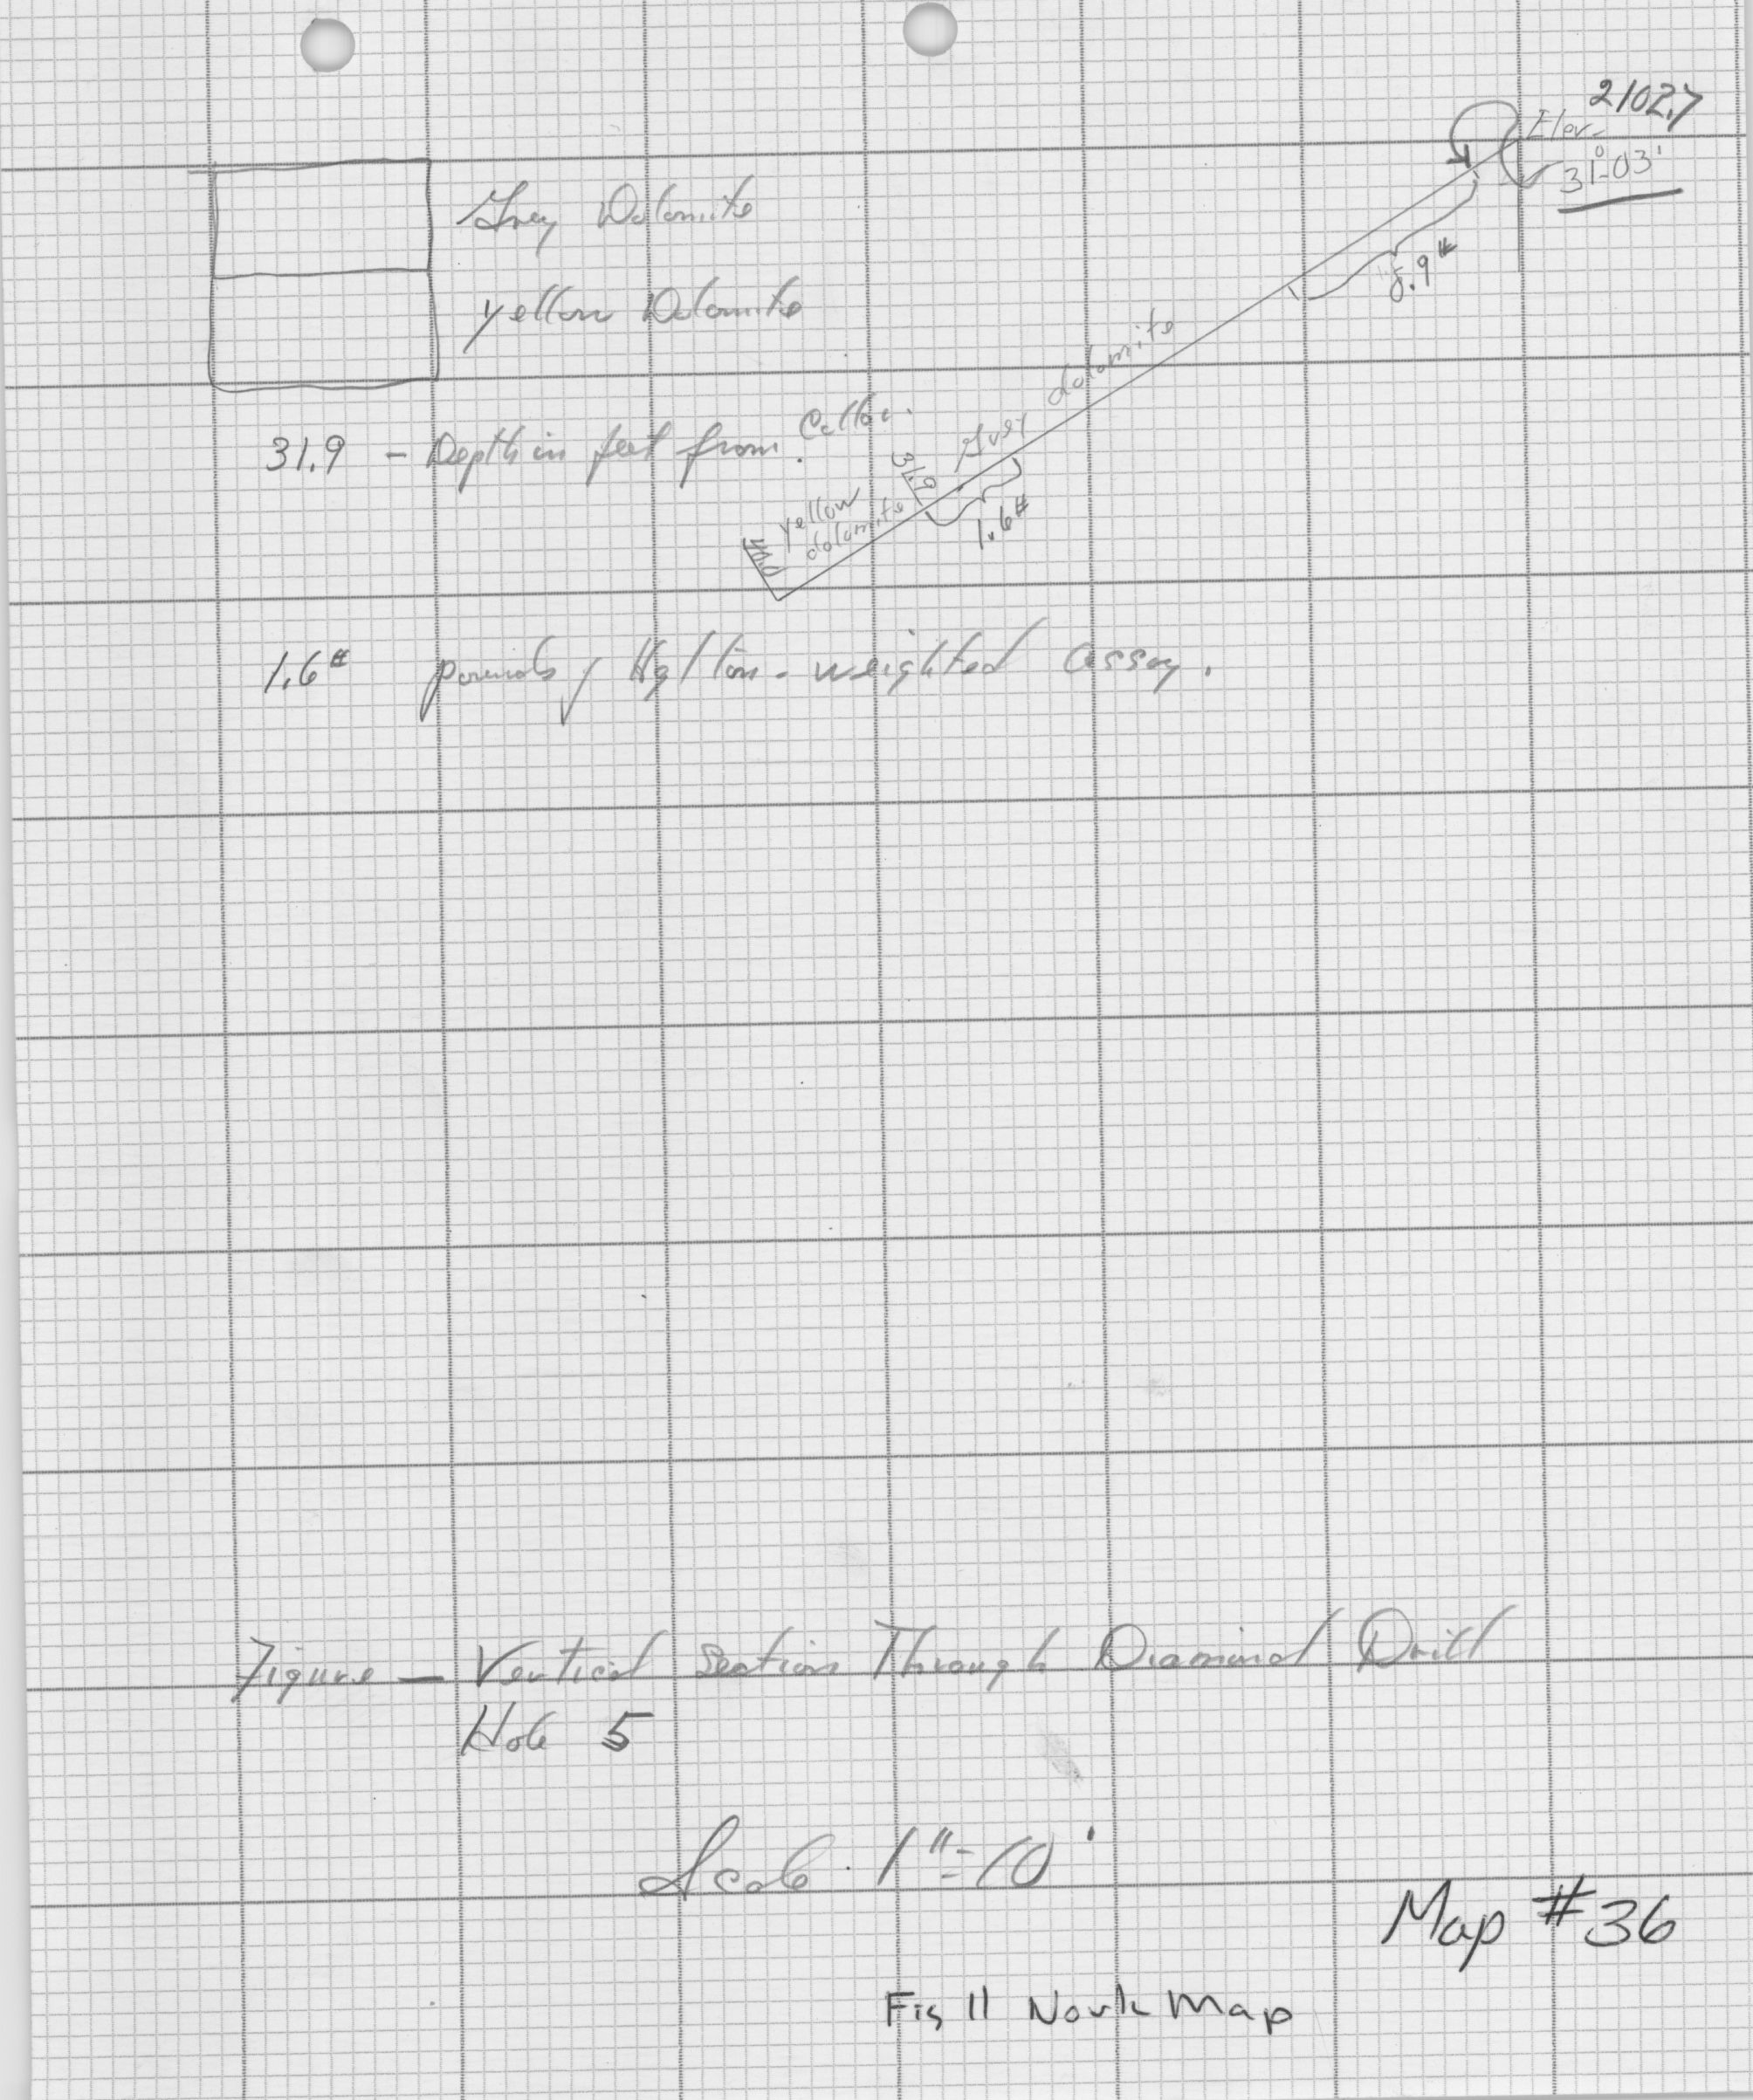 2102.7
Elev.
31°-03'
Grey Dolomite
yellow Dolomite
.9#
Grey dolomite
31.9 - Depth in feet from Collar.
31.9
1.6#
yellow
dolomite
1.6# pounds Hg/ton - weighted assay.
Figure — Vertical Section Through Diamond Drill
Hole 5
Scale . 1"=10'
Map #36
Fig 11 North Map